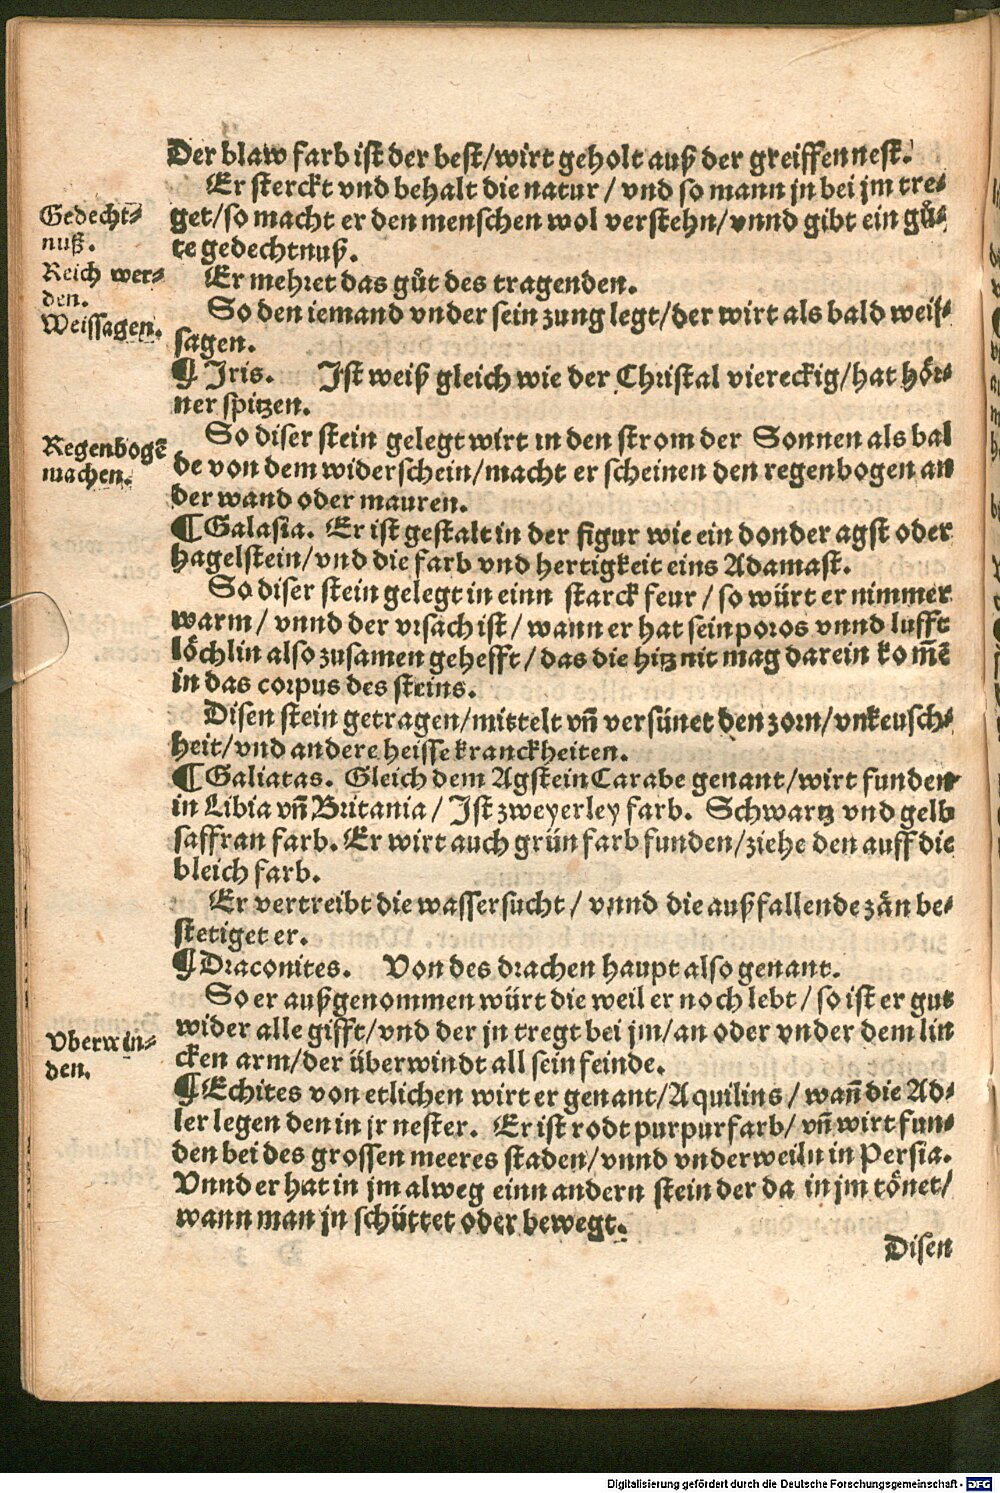 Der blaw farb ist der best/wirt geholt auß der greiffen nest.
Er sterckt vnd behalt die natur / vnd so mann jn bei jm tre⸗
Gedecht⸗
nuß.
get/so macht er den menschen wol verstehn/vnnd gibt ein gů⸗
te gedechtnuß.
Reich wer⸗
den.
Er mehret das gůt des tragenden.
Weissagen.
So den iemand vnder sein zung legt/der wirt als bald weis⸗
sagen.
¶ Iris. Ist weiß gleich wie der Christal viereckig/hat hör⸗
ner spitzen.
Regenbogē
machen.
So diser stein gelegt wirt in den strom der Sonnen als bal
de von dem widerschein/macht er scheinen den regenbogen an
der wand oder mauren.
¶ Galasia. Er ist gestalt in der figur wie ein donder agst oder
hagelstein/vnd die farb vnd hertigkeit eins Adamast.
So diser stein gelegt in einn starck feur / so würt er nimmer
warm / vnnd der vrsach ist / wann er hat sein poros vnnd lufft
löchlin also zusamen gehefft / das die hitz nit mag darein kom̄ē
in das corpus des steins.
Disen stein getragen/mittelt vn̄ versünet den zorn/vnkeusch⸗
heit/vnd andere heisse kranckheiten.
¶ Galiatas. Gleich dem Agstein Carabe genant/wirt funden
in Libia vn̄ Britania / Ist zweyerley farb. Schwartz vnd gelb
saffran farb. Er wirt auch grün farb funden/ziehe den auff die
bleich farb.
Er vertreibt die wassersucht / vnnd die außfallende zän be⸗
stetiget er.
¶ Draconites. Von des drachen haupt also genant.
So er außgenommen würt die weil er noch lebt / so ist er gut
Vberwin⸗
den.
wider alle gifft/vnd der jn tregt bei jm/an oder vnder dem lin
cken arm/der überwindt all sein feinde.
¶ Echites von etlichen wirt er genant/Aquilins / wan̄ die Ad⸗
ler legen den in jr nester. Er ist rodt purpurfarb/ vn̄ wirt fun⸗
den bei des grossen meeres staden/vnnd vnderweiln in Persia.
Vnnd er hat in jm alweg einn andern stein der da in jm tönet/
wann man jn schüttet oder bewegt.
Disen
Digitalisierung gefördert durch die Deutsche Forschungsgemeinschaft - DFG